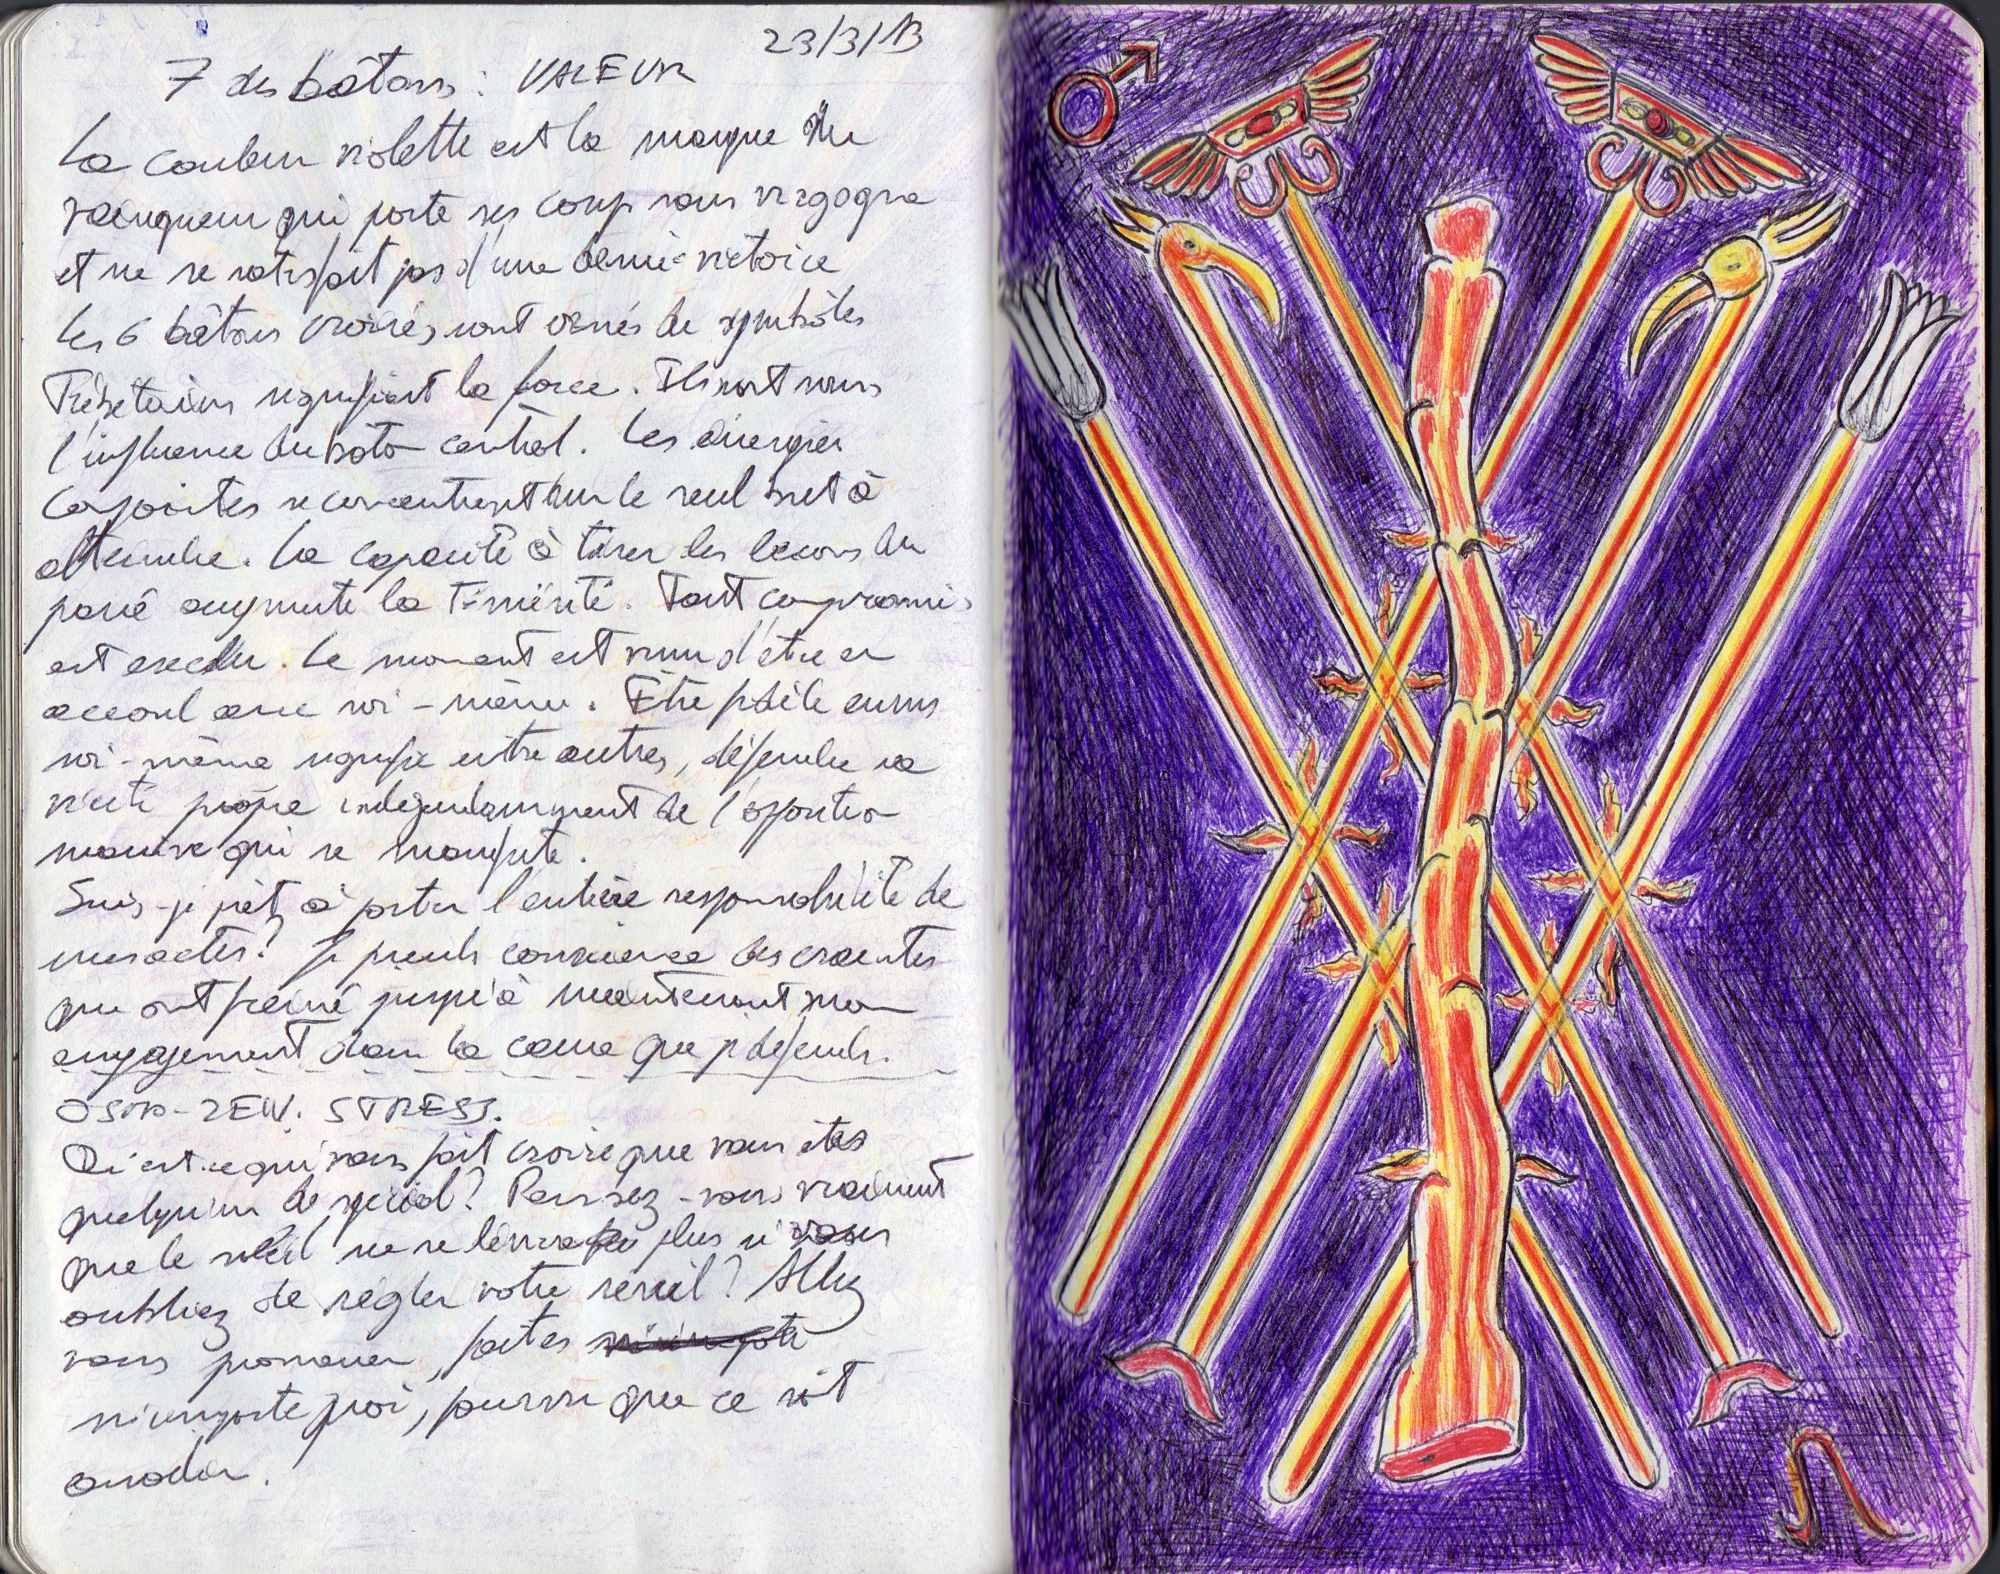 23/3/13
7 des bâtons : VALEUR
La couleur violette est la marque du
vainqueur qui porte ses coup sans vergogne
et ne se satisfait pas d'une demi-victoire
Les 6 bâtons croisés sont ornés de symboles
Tibétains signifiant la force. Ils sont sous
l'influence du bâton central. Les énergies
conjointes se concentrent sur le seul but à
atteindre. La capacité à tirer les leçons du
passé augmente la témérité. Tout compromis
est exclu. Le moment est venu d'être en
accord avec soi-même. Être fidèle envers
soi-même signifie entre autres, défendre sa
vérité propre indépendamment de l'opposition
qui se manifeste.
Suis-je prêt à porter l'entière responsabilité de
mes actes? Je prends conscience des craintes
qui ont freiné jusqu'à maintenant mon
engagement dans la cause que je défends.
OSHO-ZEN. STRESS.
Qu'est-ce qui vous fait croire que vous êtes
quelqu'un de spécial? Pensez-vous vraiment
que le soleil ne se lèvera plus si vous
oubliez de régler votre réveil? Allez
vous promener, faites
n'importe quoi, pourvu que ce soit
anodin.